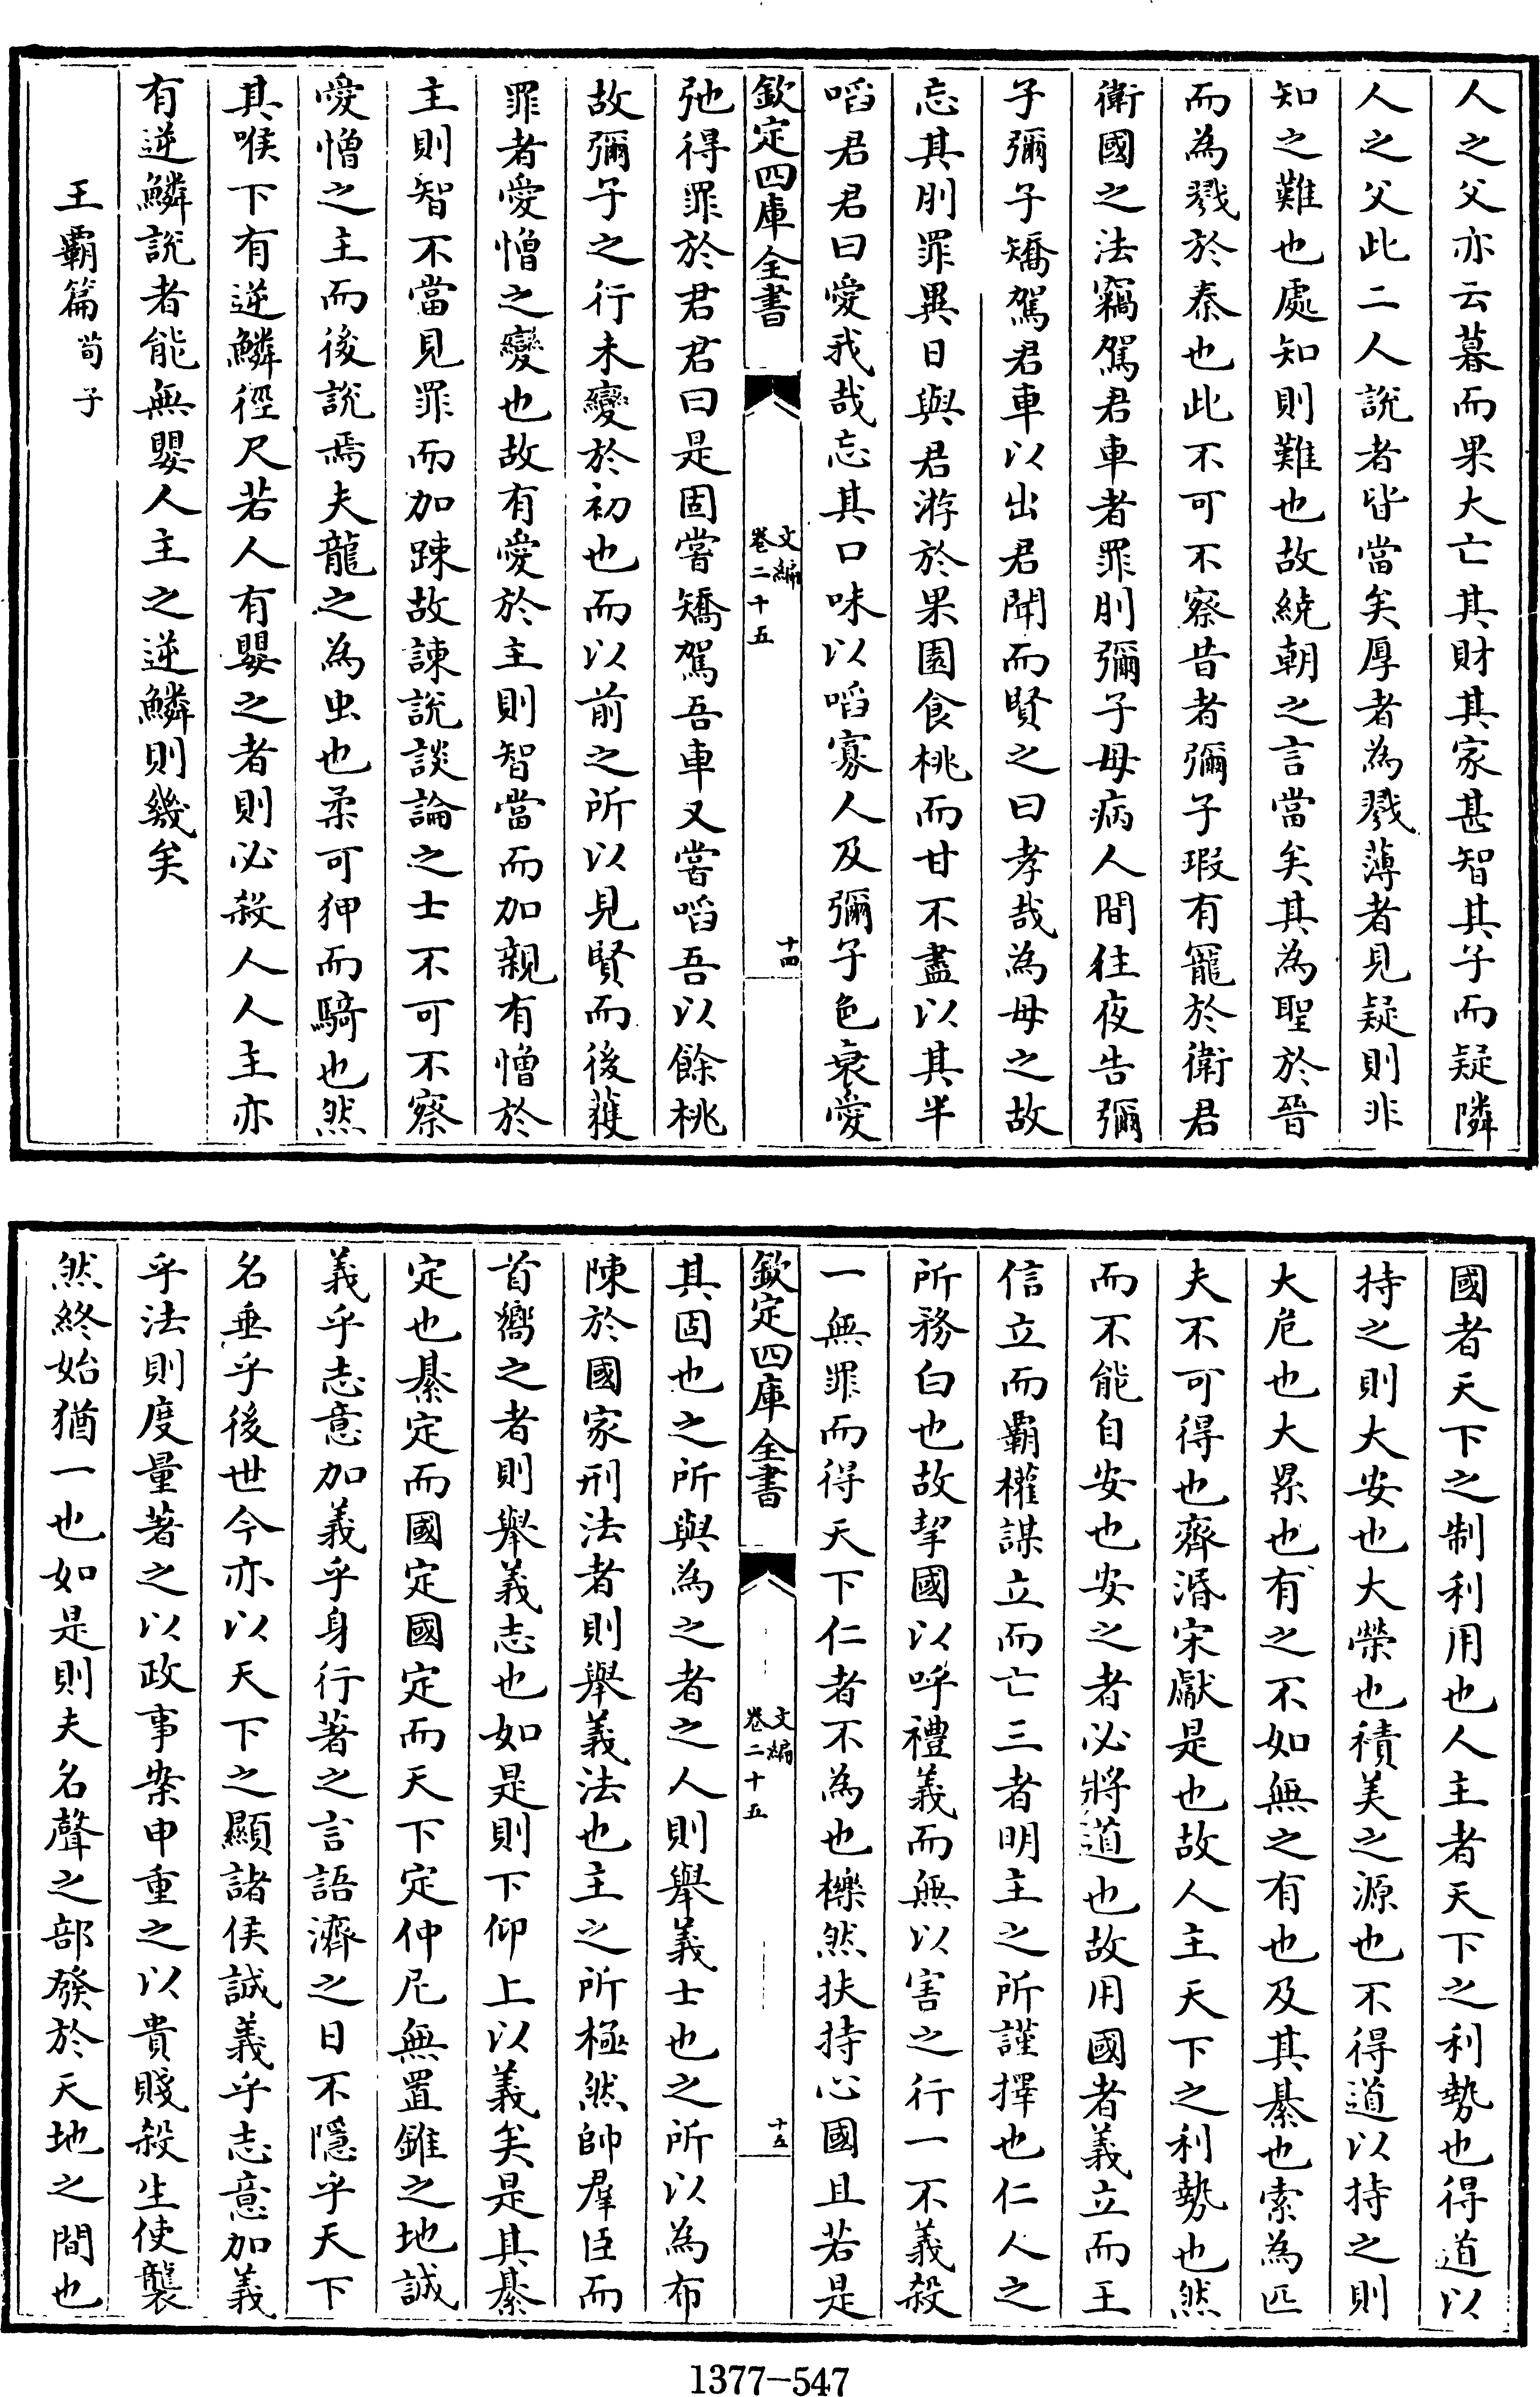 人之父亦云暮而果大亡其財其家甚智其子而疑隣
人之父此二人說者皆當矣厚者為戮薄者見疑則非
知之難也處知則難也故繞朝之言當矣其為聖於晉
而為戮於秦也此不可不察昔者彌子瑕有寵於衛君
衛國之法竊駕君車者罪刖彌子母病人間往夜告彌
子彌子矯駕君車以出君聞而賢之曰孝哉為母之故
忘其刖罪異日與君游於果園食桃而甘不盡以其半
啗君君曰愛我哉忘其口味以啗寡人及彌子色衰愛
欽定四庫全書
文編
卷二十五
十四
弛得罪於君君曰是固嘗矯駕吾車又嘗啗吾以餘桃
故彌子之行未變於初也而以前之所以見賢而後獲
罪者愛憎之變也故有愛於主則智當而加親有憎於
主則智不當見罪而加踈故諫說談論之士不可不察
愛憎之主而後說焉夫龍之為虫也柔可狎而騎也然
其喉下有逆鱗徑尺若人有嬰之者則必殺人人主亦
有逆鱗說者能無嬰人主之逆鱗則幾矣
王霸篇 荀子
國者天下之制利用也人主者天下之利勢也得道以
持之則大安也大榮也積美之源也不得道以持之則
大危也大累也有之不如無之有也及其綦也索為匹
夫不可得也齊湣宋獻是也故人主天下之利勢也然
而不能自安也安之者必將道也故用國者義立而王
信立而霸權謀立而亡三者明主之所謹擇也仁人之
所務白也故挈國以呼禮義而無以害之行一不義殺
一無罪而得天下仁者不為也櫟然扶持心國且若是
欽定四庫全書
文編
卷二十五
十五
其固也之所與為之者之人則舉義士也之所以為布
陳於國家刑法者則舉義法也主之所極然帥羣臣而
首嚮之者則舉義志也如是則下仰上以義矣是其綦
定也綦定而國定國定而天下定仲尼無置錐之地誠
義乎志意加義乎身行著之言語濟之日不隱乎天下
名垂乎後世今亦以天下之顯諸侯誠義乎志意加義
乎法則度量著之以政事案申重之以貴賤殺生使襲
然終始猶一也如是則夫名聲之部發於天地之間也
1377-547